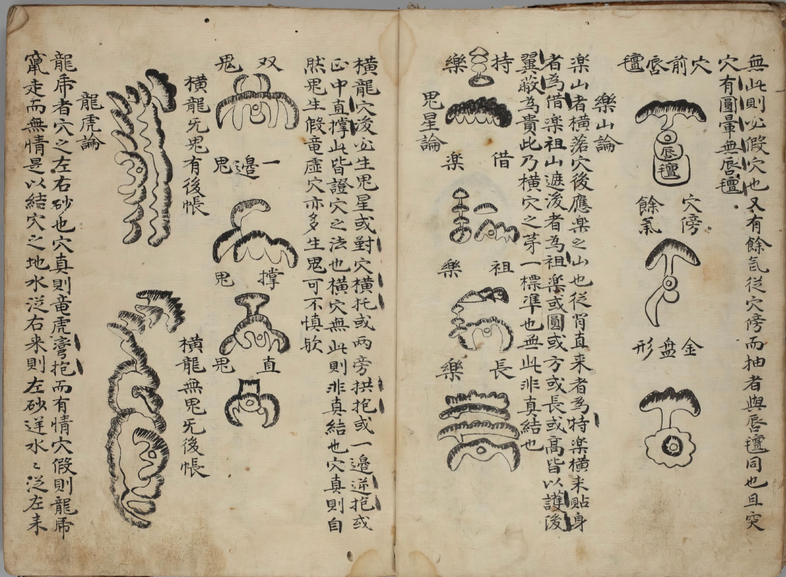 無此則必假穴也又有餘氣從穴傍而抽者與唇氊同也且突
穴有圓暈無唇氊
穴前唇氊
唇氊
穴傍
餘氣
金盘形
楽山論
楽山者橫落穴後應楽之山也從背直来者為特楽橫来貼身
者為借楽祖山遮後者為祖楽或圓或方或長或高皆以護後
翼蔽為貴此乃橫穴之芽一標準也無此非真結也
持楽
借楽
祖楽
長楽
鬼星論
橫龍穴後必生鬼星或對穴橫托或兩旁拱抱或一邉逆抱或
正中直撑此皆證穴之法也橫穴無此則非真結也穴真則自
然鬼生假竜虛穴亦多生鬼可不慎欤
双鬼
一邉鬼
撑鬼
直鬼
橫龍旡鬼有後帳
橫龍無鬼旡後帳
龍虎論
龍虎者穴之左右砂也穴真則竜虎弯抱而有情穴假則龍虎
竄走而無情是以結穴之地水従右来則左砂逆水水従左来